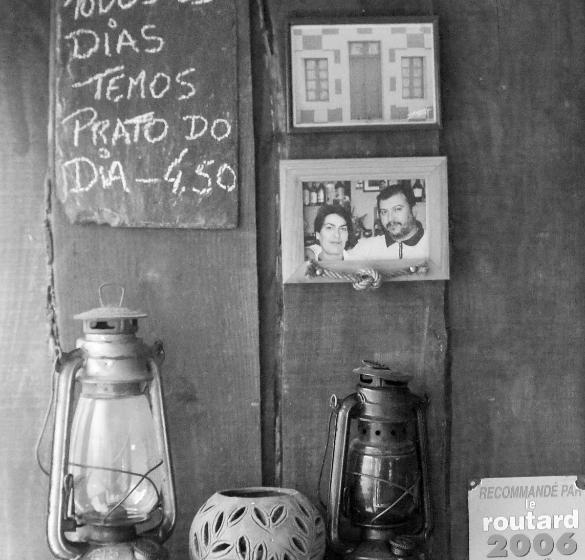 TODOS OS
DIAS
TEMOS
PRATO DO
DIA - 4.50
RECOMMANDÉ PAR
le
routard
2006